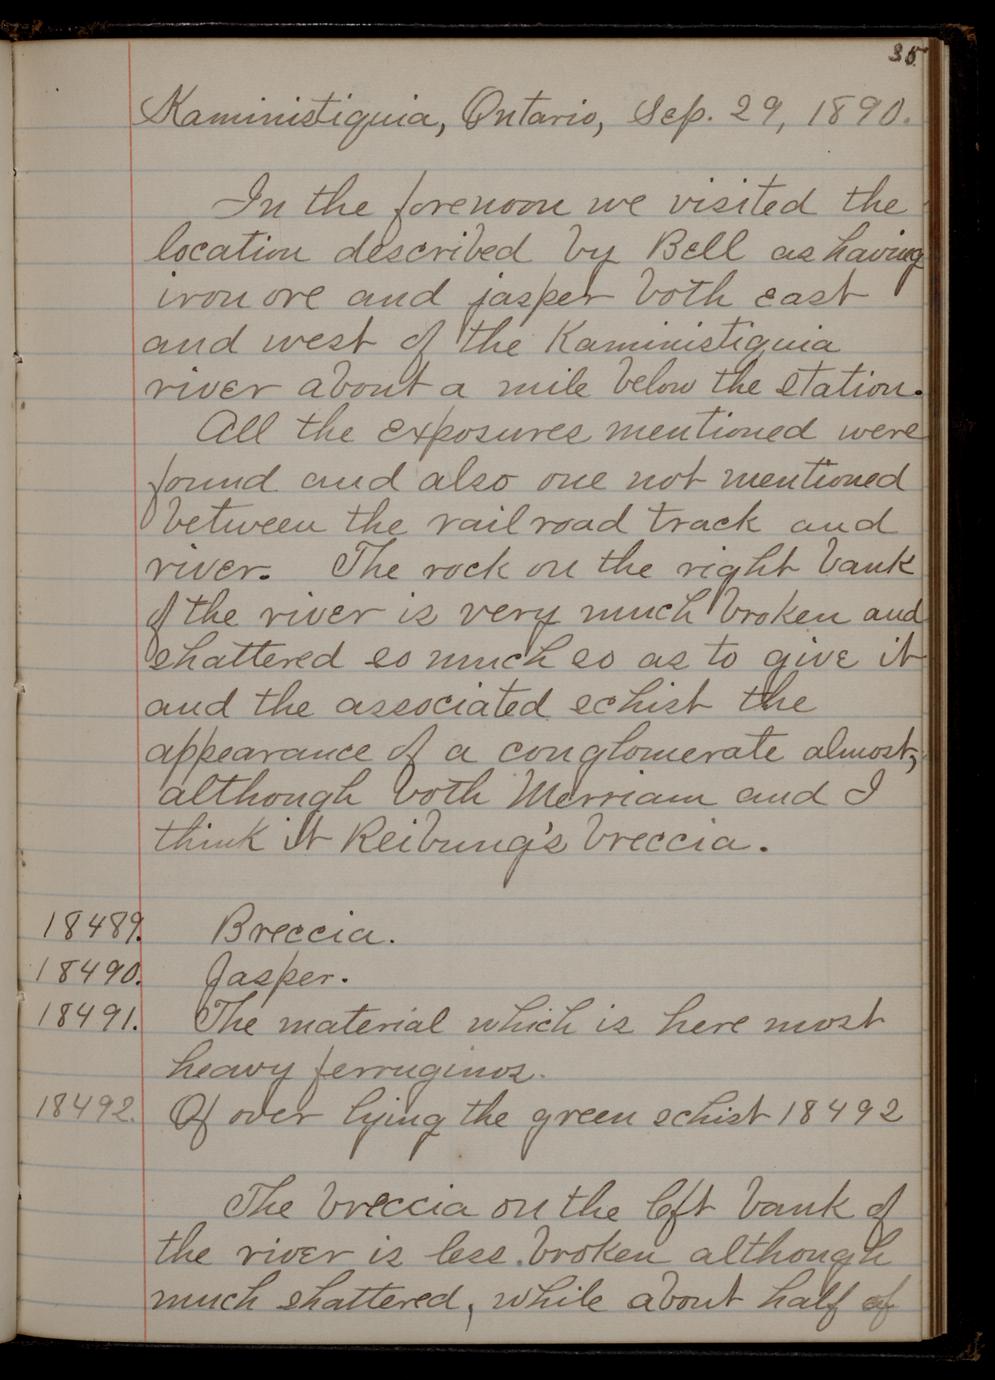 35
Kaministiquia, Ontario, Sep. 29, 1890.
In the forenoon we visited the
location described by Bell as having
iron ore and jasper both east
and west of the Kaministiquia
river about a mile below the station.
All the exposures mentioned were
found and also one not mentioned
between the railroad track and
river. The rock on the right bank
of the river is very much broken and
shattered so much so as to give it
and the associated schist the
appearance of a conglomerate almost,
although both Merriam and I
think it Reibung's breccia.
18489. Breccia.
18490. Jasper.
18491. The material which is here most
heavy ferruginos.
18492. Of over lying the green schist 18492
The breccia on the left bank of
the river is less broken although
much shattered, while about half of